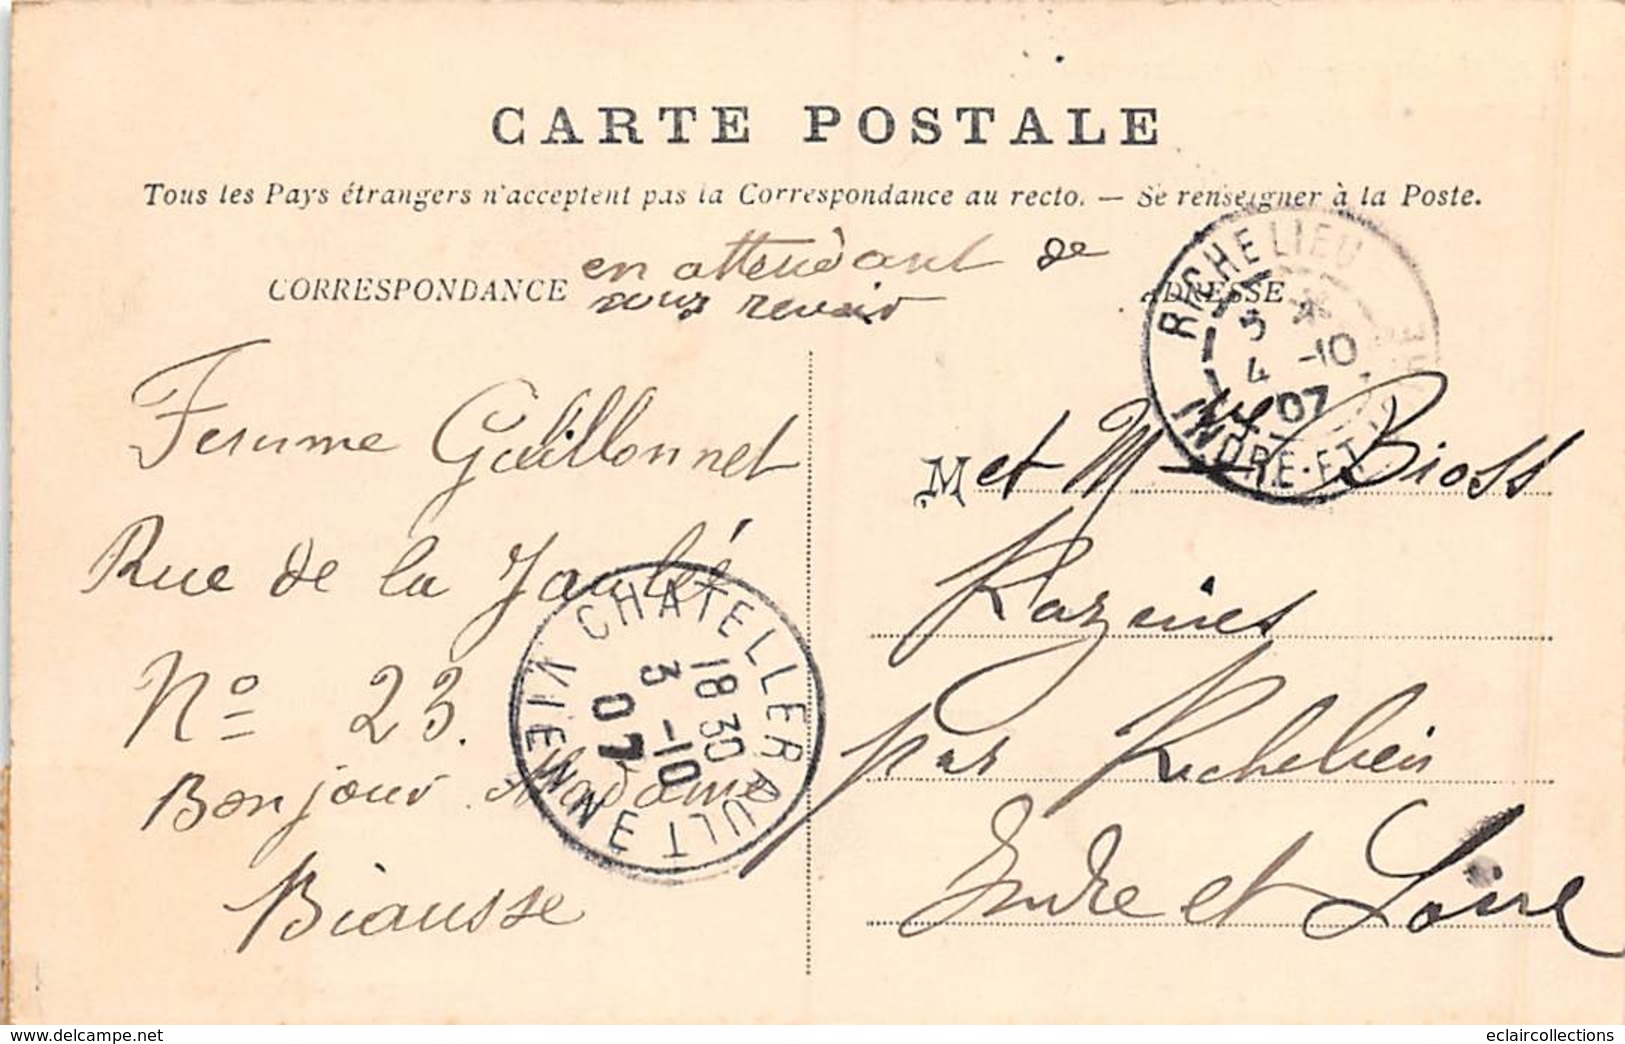 CARTE POSTALE
Tous les Pays étrangers n'acceptent pas la Correspondance au recto. — Se renseigner à la Poste.
CORRESPONDANCE
en attendant de
vous revoir
Femme Guillonnet
Rue de la
No 23.
Bonjour Madame
Biausse
CHATELLERAULT
18 30
3 -10
07
VIENNE
ADRESSE
RICHELIEU
4 -10
07
INDRE-ET
M et M Bioss
Razines
par Richelieu
Indre et Loire
www.delcampe.net
eclaircollections